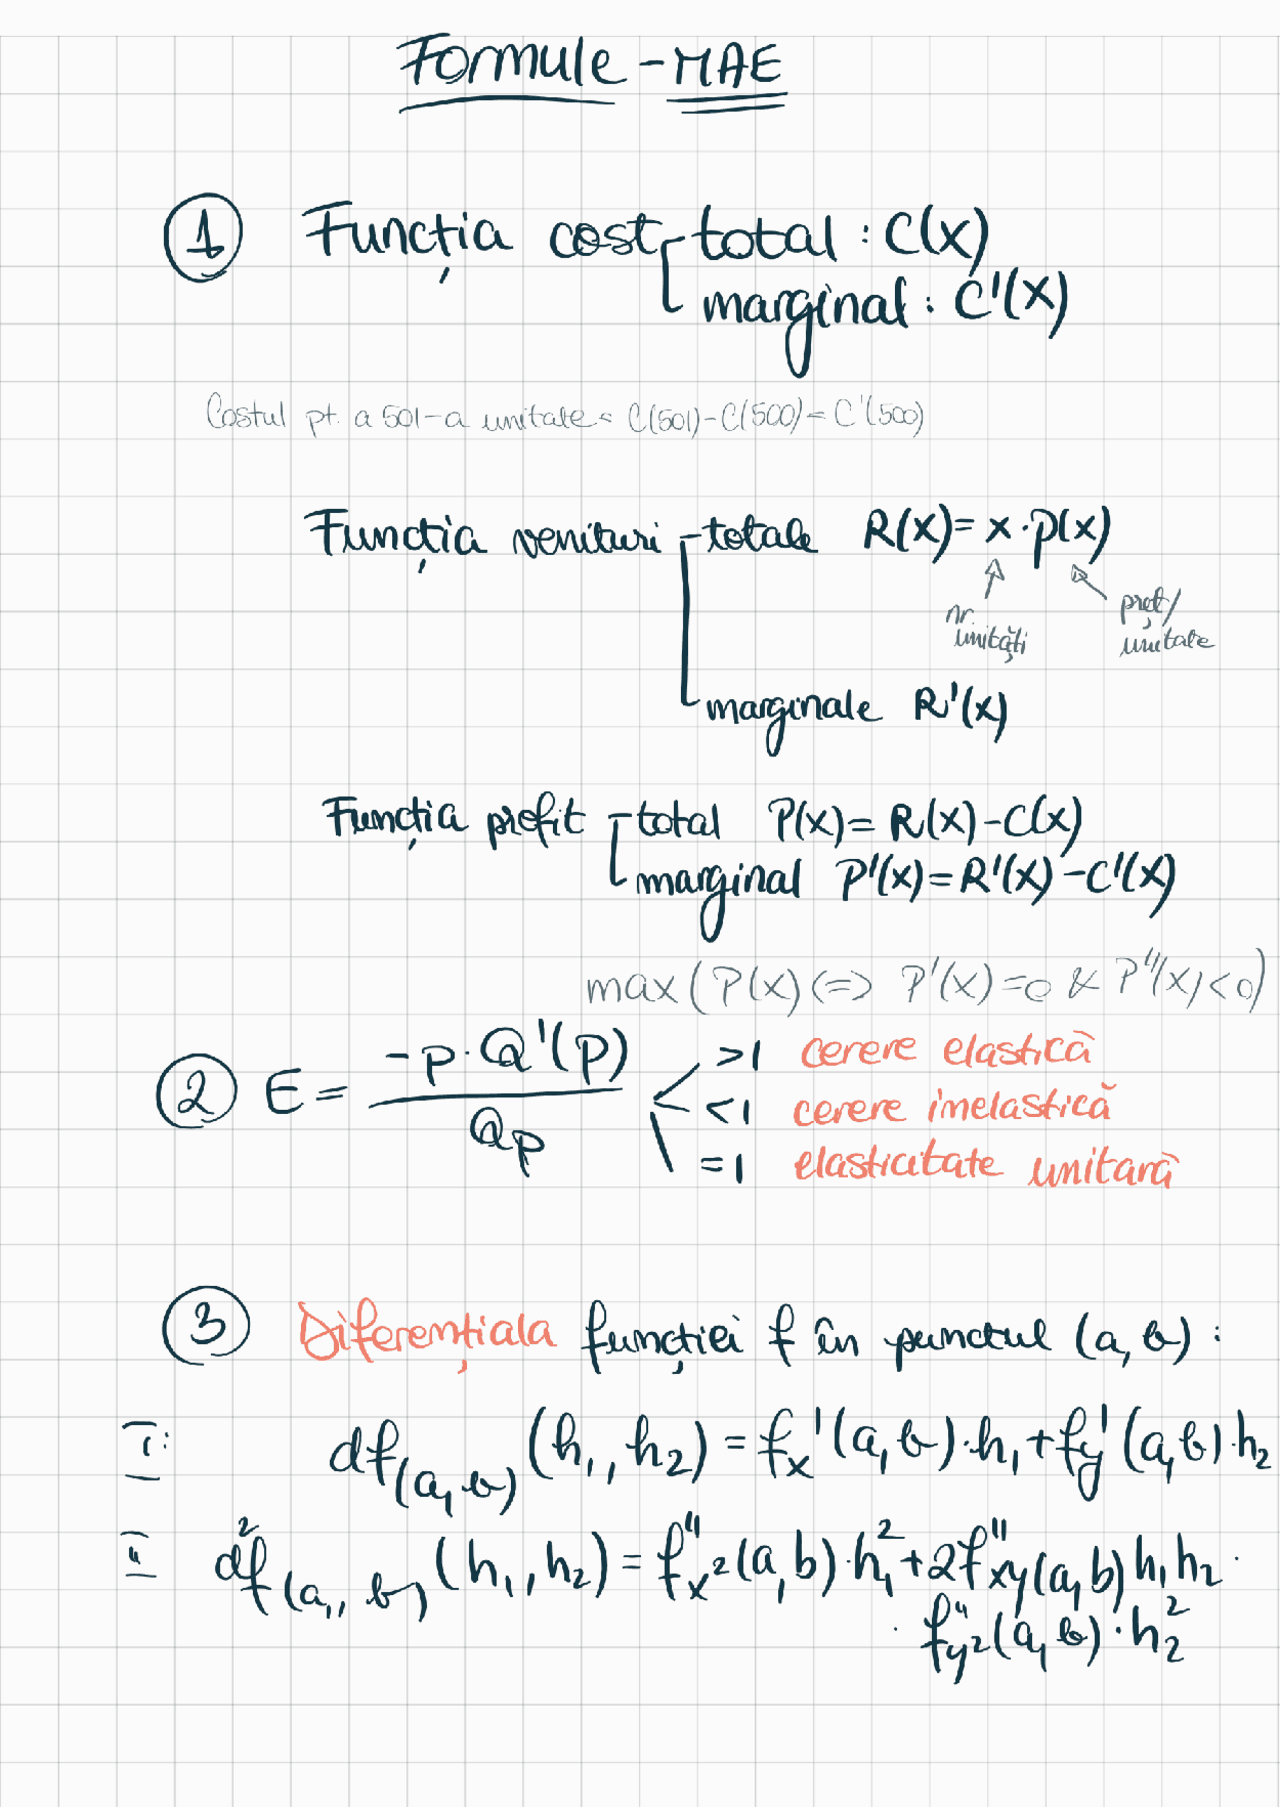 Formule - MAE
① Funcția cost total : C(x)
marginal : C'(x)
Costul pt. a 501-a unitate = C(501)-C(500) = C'(500)
Funcția venituri totale R(x) = x · p(x)
nr. unități preț/unitate
marginale R'(x)
Funcția profit total P(x) = R(x) - C(x)
marginal P'(x) = R'(x) - C'(x)
max (P(x) <=> P'(x) = 0 & P''(x) < 0)
② E = -p · Q'(p) / Qp
>1 cerere elastică
<1 cerere inelastică
=1 elasticitate unitară
③ Diferențiala funcției f în punctul (a, b) :
I: df(a, b) (h₁, h₂) = fx'(a, b) · h₁ + fy'(a, b) · h₂
II d²f(a, b) (h₁, h₂) = f''x²(a, b) · h₁² + 2f''xy(a, b) h₁h₂ ·
· f''y²(a, b) · h₂²